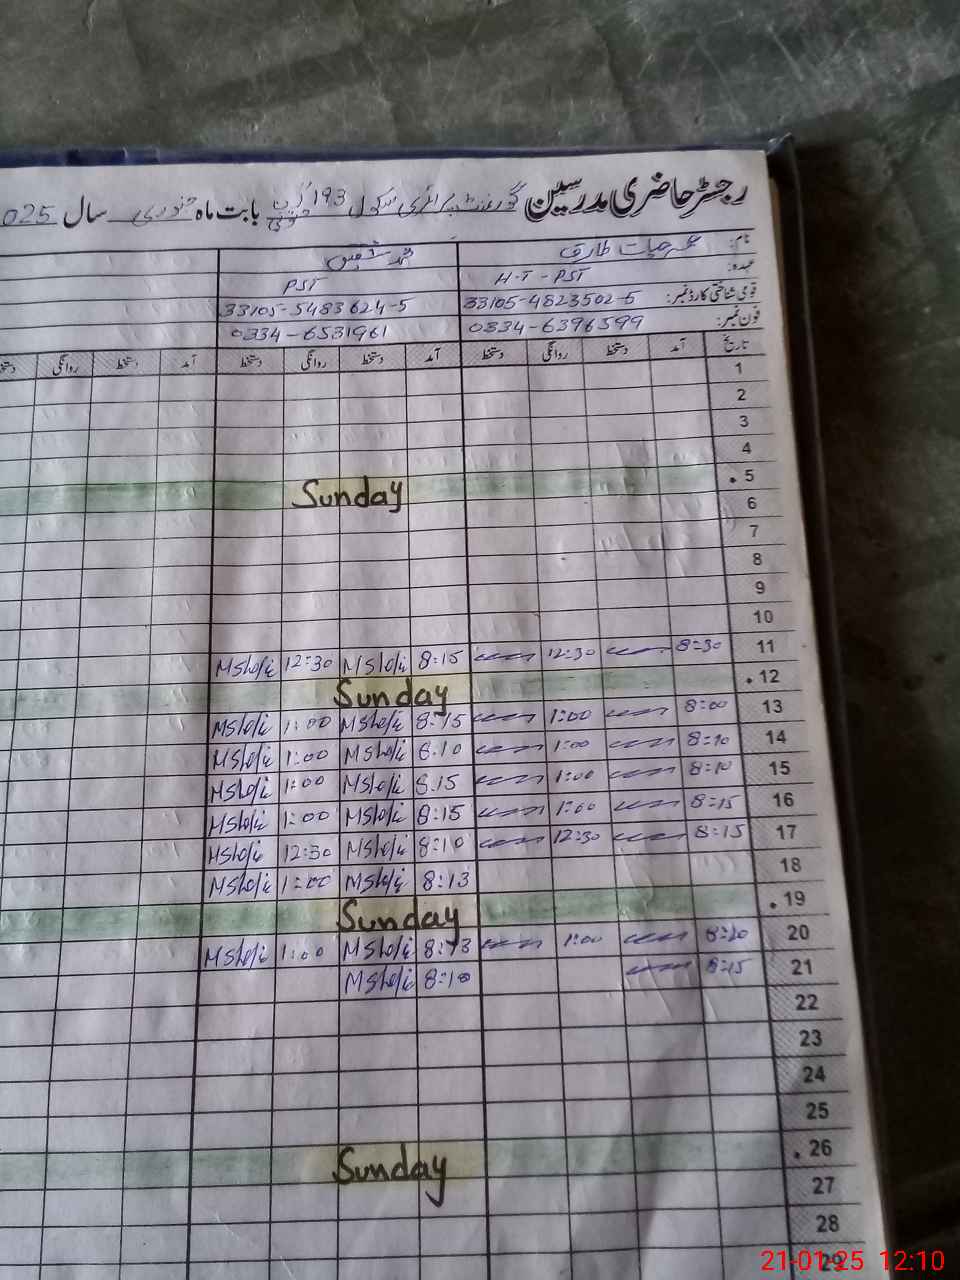 رجسٹر حاضری مدرسین گورنمنٹ پرائمری سکول 193 گ ب بابت ماہ جنوری سال 025
نام: عمر حیات طارق محمد شفیق
عہدہ: H-T-PST PST
قومی شناختی کارڈ نمبر: 33105-4823502-5 33105-5483624-5
فون نمبر: 0334-6396599 0334-6531961
تاریخ آمد دستخط روانگی دستخط آمد دستخط روانگی دستخط آمد دستخط روانگی
1
2
3
4
5 Sunday
6
7
8
9
10
11 8:30 12:30 8:15 12:30
12 Sunday
13 8:00 1:00 8:15 1:00
14 8:10 1:00 8:10 1:00
15 8:10 1:00 8:15 1:00
16 8:15 1:00 8:15 1:00
17 8:15 12:30 8:10 12:30
18 8:13 1:00
19 Sunday
20 8:10 1:00 8:13 1:00
21 8:15 8:10
22
23
24
25
26 Sunday
27
28
29
21-01-25 12:10